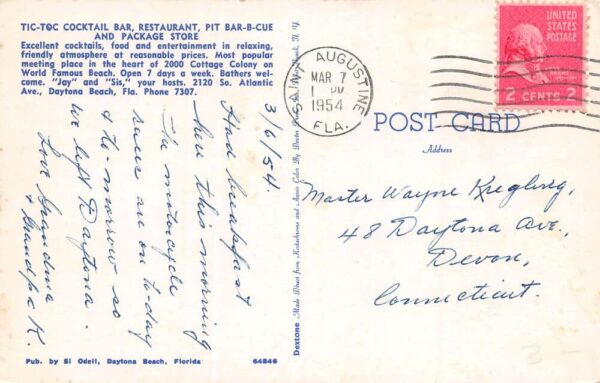 TIC-TOC COCKTAIL BAR, RESTAURANT, PIT BAR-B-CUE
AND PACKAGE STORE
Excellent cocktails, food and entertainment in relaxing,
friendly atmosphere at reasonable prices. Most popular
meeting place in the heart of 2000 Cottage Colony on
World Famous Beach. Open 7 days a week. Bathers wel-
come. "Jay" and "Sis," your hosts. 2120 So. Atlantic
Ave., Daytona Beach, Fla. Phone 7307.
3/6/54.
Had breakfast
here this morning
The motorcycle
races are on to-day
& to-morrow so
we left Daytona.
Love Grandma
& Grandpa K.
Pub. by Si Odell, Daytona Beach, Florida
64846
Dextone Made Direct from Kodachrome and Ansco Color By Dexter
SAINT AUGUSTINE
MAR 7
1 PM
1954
FLA.
UNITED
STATES
POSTAGE
2 CENTS 2
POST CARD
Address
Master Wayne Kregling,
48 Daytona Ave.,
Devon,
Connecticut.